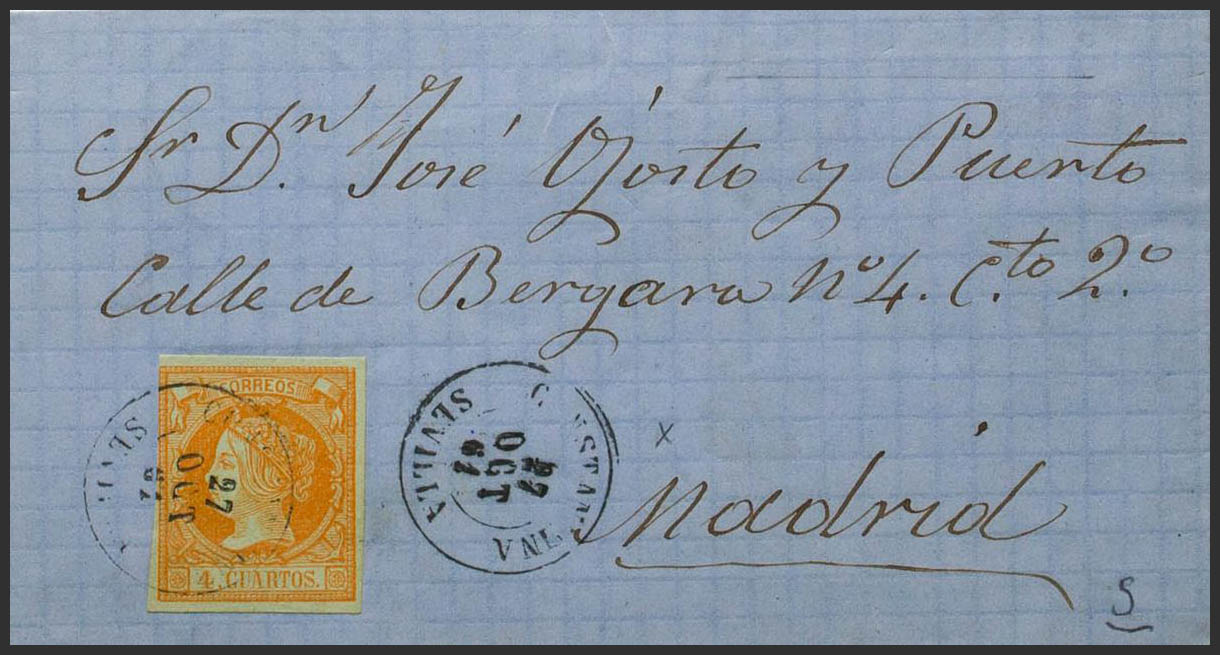 Sr Dn. José Yjosto y Puerto
Calle de Bergara nº 4. Cto. 2.º
CORREOS
SEVILLA
27
OCT
61
4 CUARTOS.
CONSTANTINA
SEVILLA
27
OCT
61
x
Madrid
S